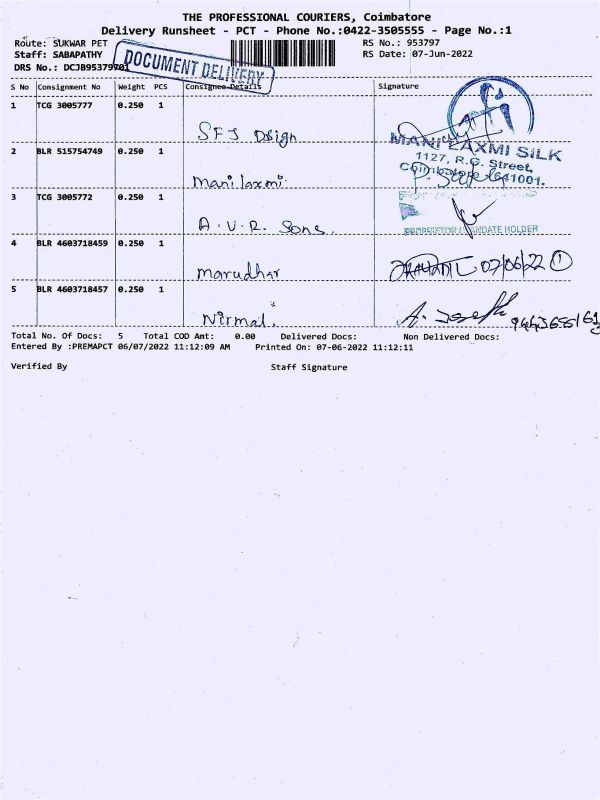 THE PROFESSIONAL COURIERS, Coimbatore
Delivery Runsheet - PCT - Phone No.:0422-3505555 - Page No.:1
Route: SUKWAR PET RS No.: 953797
Staff: SABAPATHY RS Date: 07-Jun-2022
DRS No.: DCJB95379701
DOCUMENT DELIVERY
S No Consignment No Weight PCS Consignee Details Signature
1 TCG 3005777 0.250 1 SFJ Dsign
2 BLR 515754749 0.250 1 Mani laxmi
MANI LAXMI SILK
1127, R.G. Street,
Coimbatore 641001.
3 TCG 3005772 0.250 1 A.V.R. Sons.
PROPRIETOR / MANDATE HOLDER
4 BLR 4603718459 0.250 1 Marudhar 07/06/22 1
5 BLR 4603718457 0.250 1 Nirmal.
Total No. Of Docs: 5 Total COD Amt: 0.00 Delivered Docs: Non Delivered Docs:
Entered By :PREMAPCT 06/07/2022 11:12:09 AM Printed On: 07-06-2022 11:12:11
Verified By Staff Signature